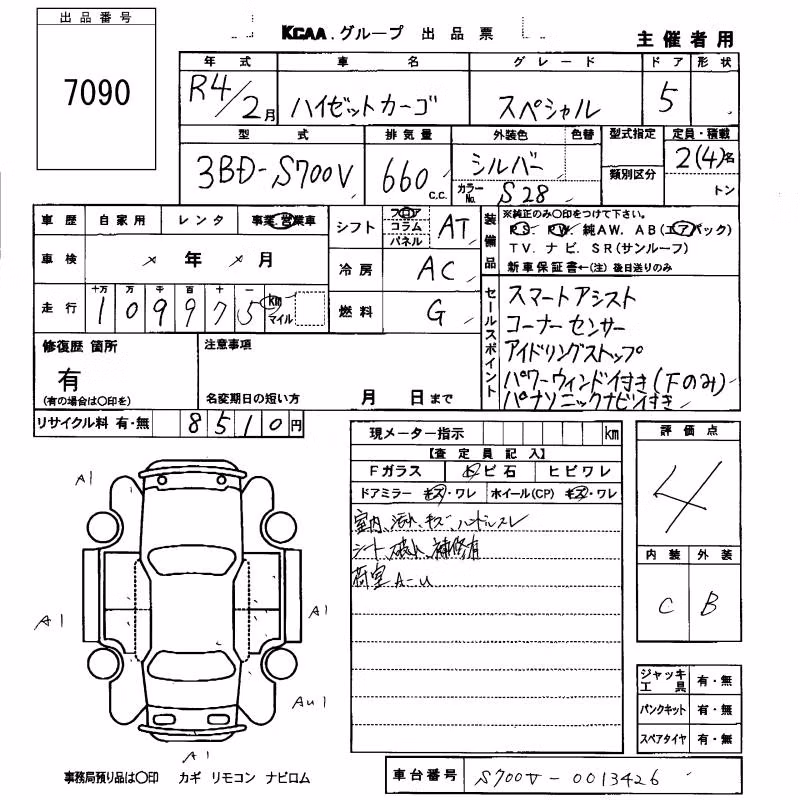 出品番号
7090
KCAA.グループ 出品票
主催者用
年式 車名 グレード ドア 形状
R4/2月 ハイゼットカーゴ スペシャル 5
型式 排気量 外装色 色替 型式指定 定員・積載
3BD-S700V 660 C.C. シルバー 2(4)名
カラーNo. S28 類別区分 トン
車歴 自家用 レンタ 事業・営業車
シフト フロア コラム パネル AT
装備品
※純正のみ○印をつけて下さい。
PS. PW. 純AW. AB(エアバック)
TV. ナビ. SR(サンルーフ)
新車保証書←(注)後日送りのみ
車検 年 月
冷房 AC
走行 十万 万 千 百 十 一
109975 km マイル
燃料 G
セールスポイント
スマートアシスト
コーナーセンサー
アイドリングストップ
パワーウィンドウ付き(下のみ)
パナソニックナビ付き
修復歴 箇所 注意事項
有
(有の場合は○印を) 名変期日の短い方 月 日まで
リサイクル料 有・無 8510円
現メーター指示 km
【査定員記入】
Fガラス トビ石 ヒビワレ
ドアミラー キズ・ワレ ホイール(CP) キズ・ワレ
室内、汚れ、キズ、ハンドルスレ
シート、破れ、補修有
荷室 A-U
評価点
4
内装 外装
C B
ジャッキ工具 有・無
パンクキット 有・無
スペアタイヤ 有・無
A1
A1
A1
Au1
A1
事務局預り品は○印 カギ リモコン ナビロム
車台番号 S700V-0013426